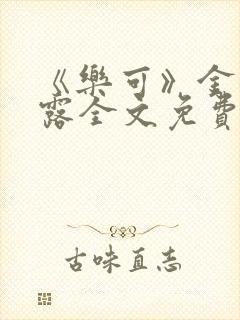 《樂可》金
露全文免費
古味直志